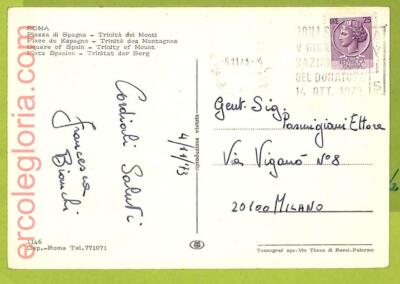 ROMA
Piazza di Spagna - Trinità dei Monti
Place de Espagne - Trinité des Montagnes
Square of Spain - Trinity of Mount
Platz Spanien - Trinitat der Berg
LIRE 25
DONA S
V GIORN
NAZION
DEL DONATORE
14 OTT. 1973
AVIS
Cordiali Saluti
Francesca
Bianchi
4/11/73
Gent. Sig.
Parmigiani Ettore
Via Viganò N°8
20100 MILANO
riproduzione vietata
1146
Dep.-Roma Tel.771071
Tecnograf spa-Via Tinco di Ravel-Palermo
ercolegloria.com